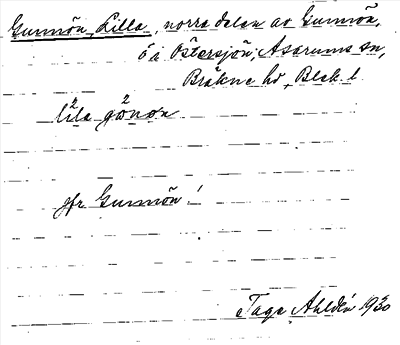 Gunnön, Lilla, norra delen av Gunnön,
ö i Östersjön, Asarums sn,
Bräkne hd, Blek. l.
lila gönön
jfr Gunnön!
Tage Ahldén 1930